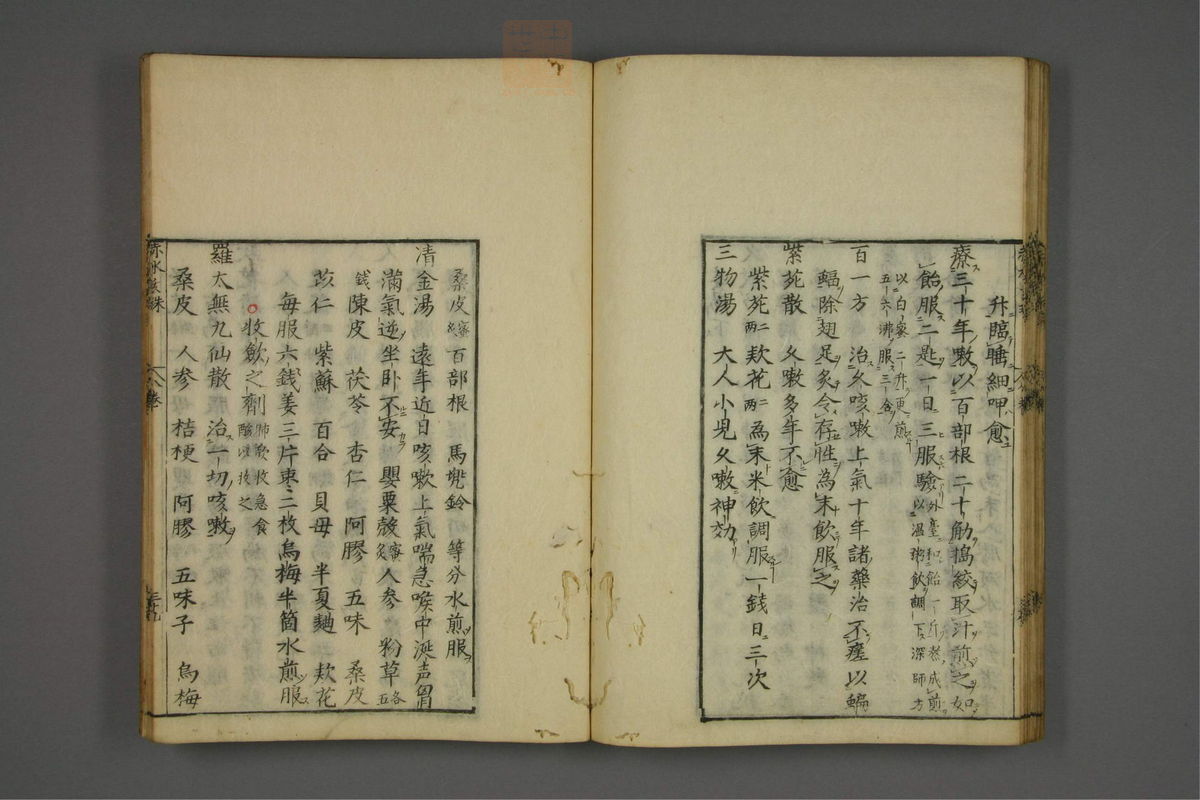 升臨睡細呷愈
療三十年嗽以百部根二十觔搗絞取汁煎之如
飴服二匙一日三服驗外臺和飴一斤煎成煎
以溫粥飲調下深師方
以白蜜二升更煎
五六沸服三合
百一方 治久咳嗽上氣十年諸藥治不瘥以蝙
蝠除翅足炙令存性為末飲服之
紫菀散 久嗽多年不愈
紫菀二兩 欵花二兩 為末米飲調服一錢日三次
三物湯 大人小兒久嗽神効
桑皮蜜炙 百部根 馬兜鈴 等分水煎服
清金湯 遠年近日咳嗽上氣喘急喉中涎声胷
滿氣逆坐卧不安 嬰粟殼蜜炙 人參 粉草各五
錢 陳皮 茯苓 杏仁 阿膠 五味 桑皮
苡仁 紫蘇 百合 貝毋 半夏麯 欵花
每服六錢姜三片棗二枚烏梅半箇水煎服
收斂之劑肺欲收急食
酸以收之
羅太無九仙散 治一切咳嗽
桑皮 人參 桔梗 阿膠 五味子 烏梅
赤水玄珠